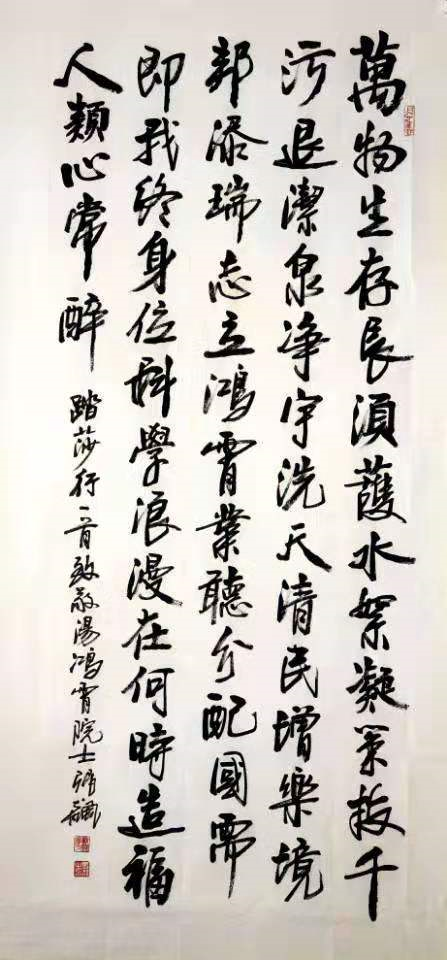 萬物生存長須護水絮凝策拔千
污退潔泉净宇洗天清民增樂境
邦添瑞志立鴻霄業聽分配國需
即我終身位科學浪漫在何時造福
人類心常醉
踏莎行一首致敬湯鴻霄院士